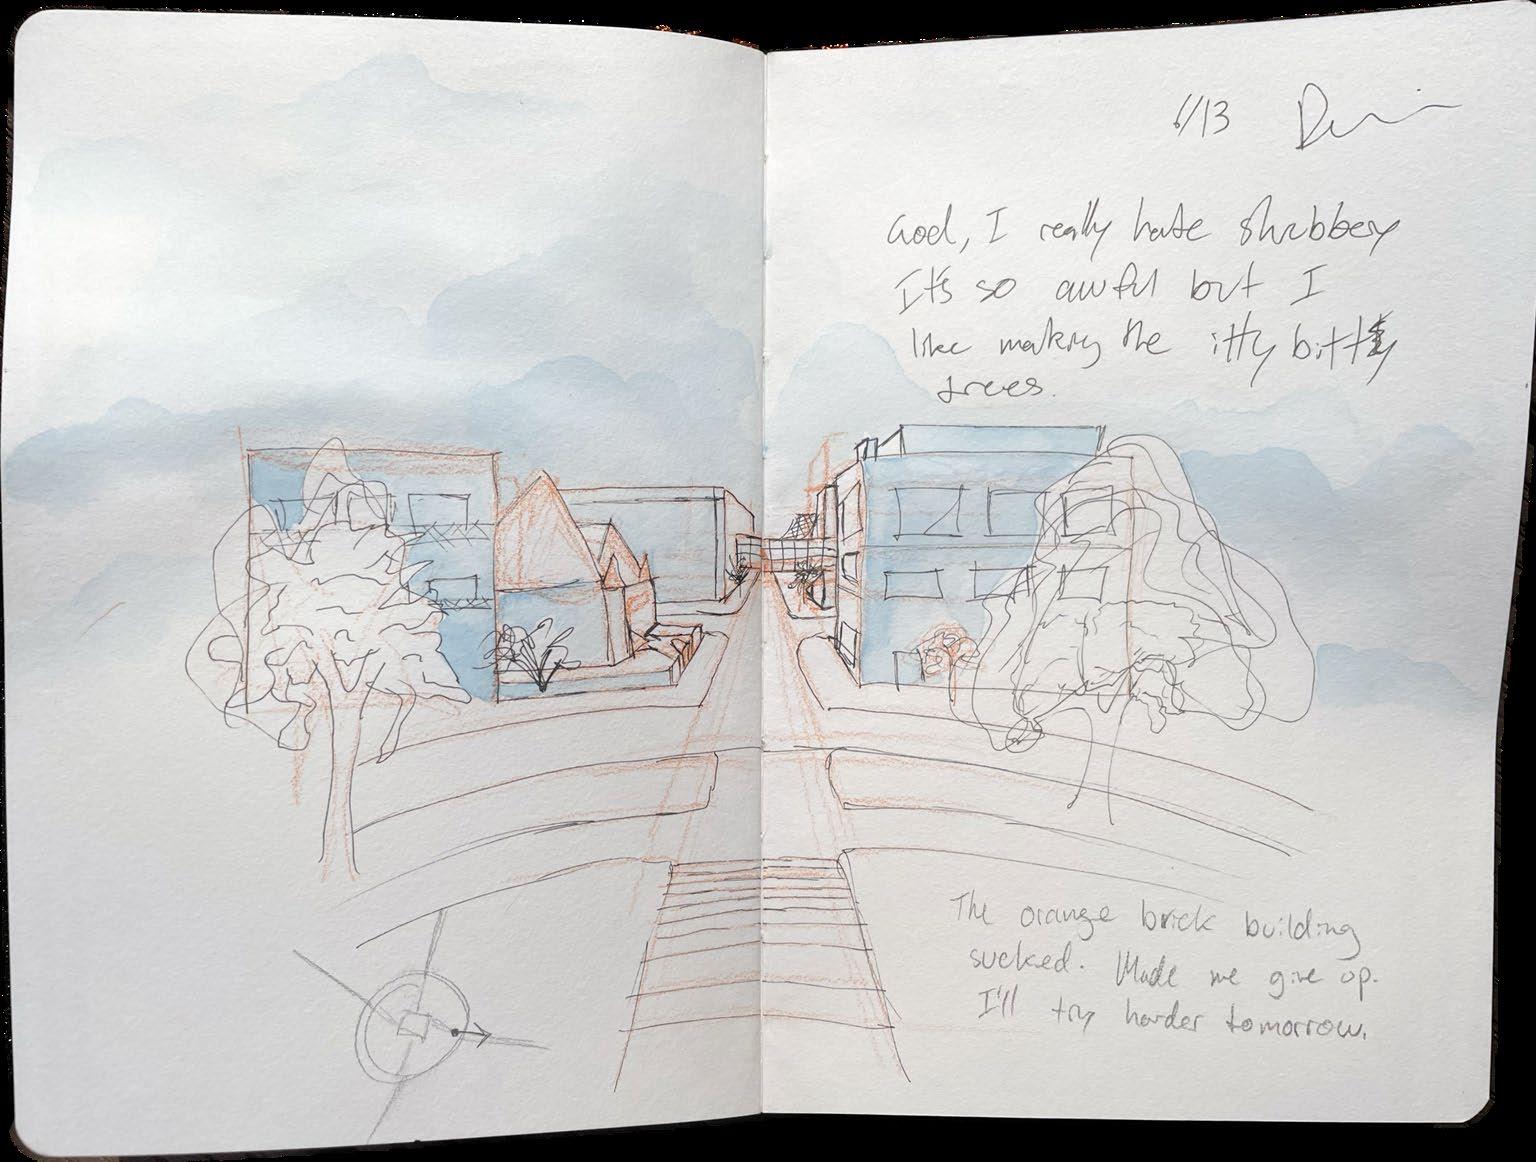 6/13
God, I really hate shrubbery
It's so awful but I
like making the itty bitty
trees.
The orange brick building
sucked. Made me give up.
I'll try harder tomorrow.